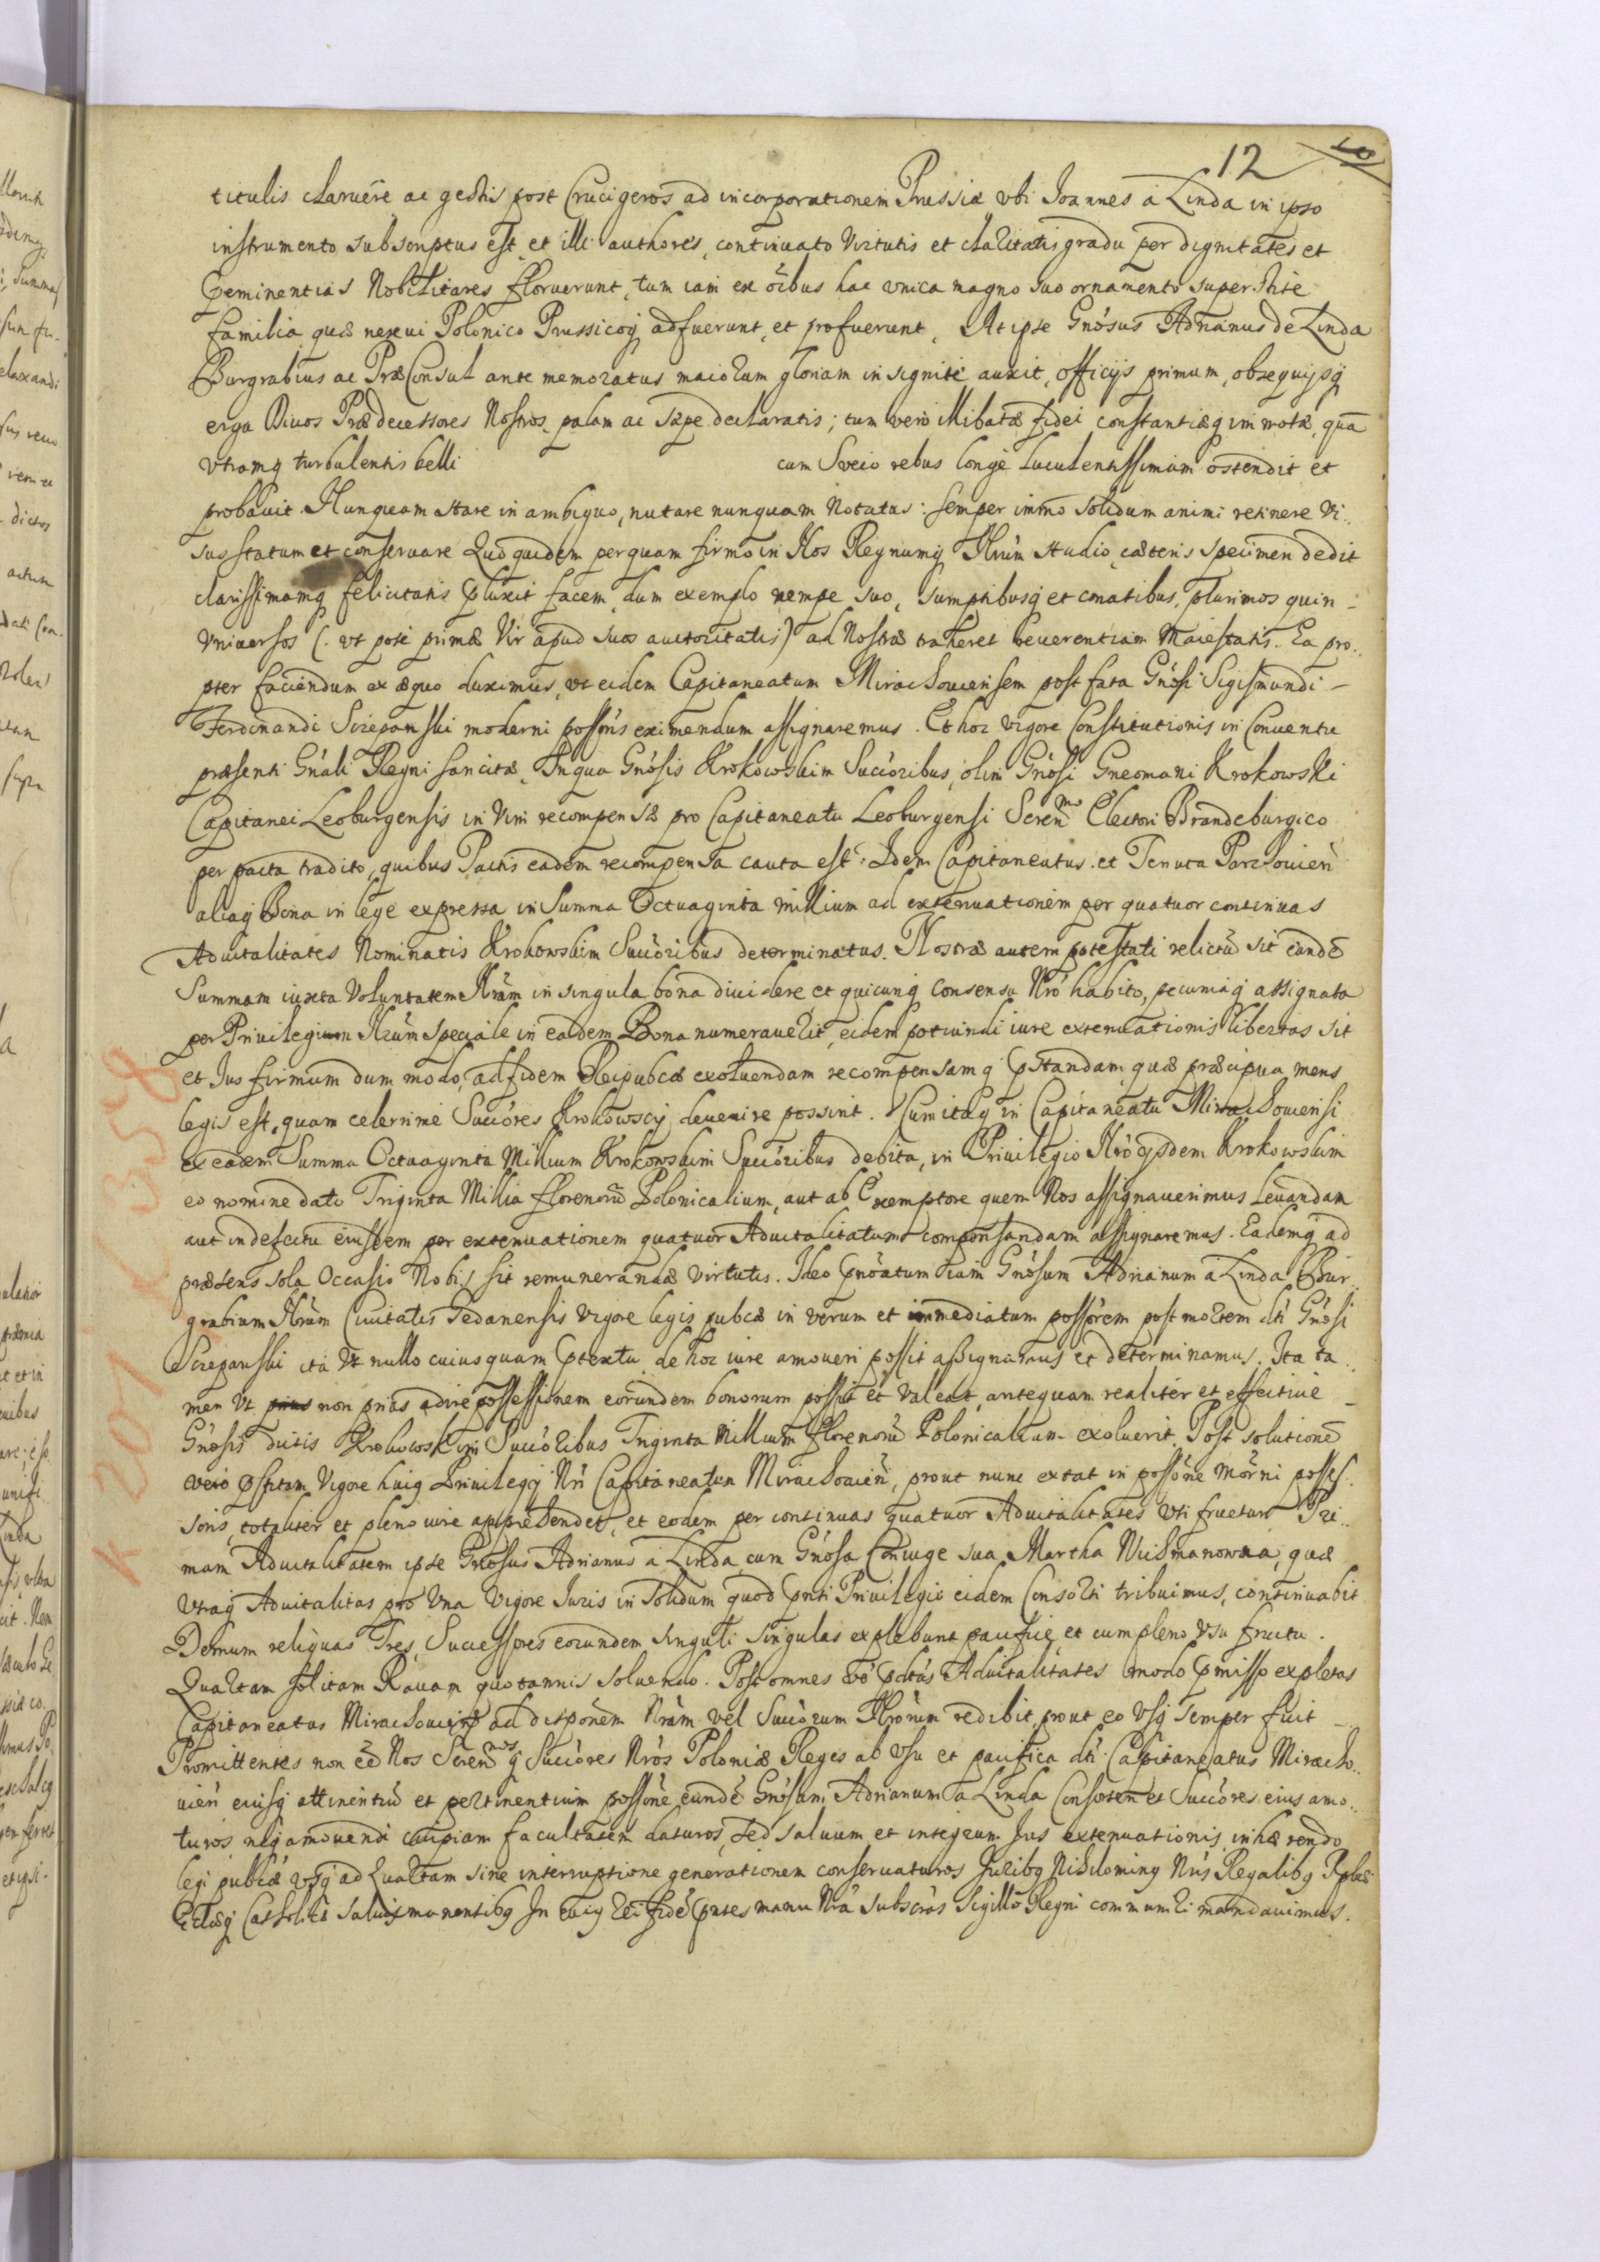 12 10
titulis claruêre ac gestis post Crucigeros ad incorporationem Prussiæ vbi Joannes a Linda in ipso
instrumento subscriptus est, et illi authores, continuato virtutis et claritatis gradu per dignitates et
Eminentias Nobilitares floruerunt, tum iam ex oibus hac vnica magno suo ornamento superstite
familia quæ nexui Polonico Prussicoq adfuerunt, et profuerunt. At ipse Gnosus Adrianus de Linda
Burgrabius ac PræConsul ante memoratus maiorum gloriam insigniter auxit, officijs primum, obsequijsq
erga Divos Prædecessores Nostros palam ac sæpe declaratis; tum verò illibatæ fidei constantiæq immotæ, quã
vtramq turbulentis belli cum Sveio rebus longè luculentissimam ostendit et
probauit. Nunquam stare in ambiguo, nutare nunquam Notatus: semper immo solidum animi retinere vi..
sus statum et conservare Quo quidem perquam firmo in Nos Regnumq Nrũm studio, cæteris specimen dedit
clarissimamq felicitatis præluxit facem, dum exemplo nempe suo, sumptibusq et conatibus, plurimos quin-
vniversos (. vt potè primæ Vir apud suos auctoritatis) ad Nostræ traheret reuerentiam Maiestatis. Ea pro..
pter faciendum ex æquo duximus, vt eidem Capitaneatum Mirachouiensem post fata Gnosi Sigismundi-
Ferdinandi Szczepanski moderni possoris eximendum assignaremus. Et hoc vigore Constitutionis in Conuentu
præsenti Gnali Regni sancitæ, In qua Gnosis Krokowskim Succoribus, olim Gnosi Gneomari Krokowski
Capitanei Leoburgensis in Vim recompensæ pro Capitaneatu Leoburgensi Seren^mo Electori Brandeburgico
per pacta tradito, quibus Pactis eadem recompensa cauta est: Idem Capitaneatus et Tenuta Parchouien
aliaq Bona in lege expressa in Summa Octuaginta millium ad extenuationem per quatuor continuas
Aduitalitates Nominatis Krokowskim Succoribus determinatus. Nostræ autem potestati relictũ sit eandẽ
Summam iuxta Voluntatem Nrãm in singula bona diuidere et quicunq Consensu Nrõ habito, pecuniaq assignata
per Privilegium Nrũm speciale in eadem Bona numerauerit, eidem potiundi iure extenuationis libertas sit
et Jus firmum dum modo, ad fidem Reipubcæ exoluendam recompensamq præstandam, quæ præcipua mens
legis est, quam celerrimè Succores Krokowscij devenire possint. Cum itaq in Capitaneatu Mirachouiensi
ex eadem Summa Octuaginta Millium Krokowskim Succoribus debita, in Priuilegio Nrõ ijsdem Krokowskim
eo nomine dato Triginta Millia florenorũ Polonicalium, aut ab Exemptore quem Nos assignauerimus Leuandam
aut in defectu eiusdem per extenuationem quatuor Aduitalitatum compensandam assignaremus. Eademq ad
præsens sola Occasio Nobis sit remunerandæ virtutis. Ideo prænoatum iam Gnosum Adrianum a Linda Bur
grabium Nrũm Ciuitatis Gedanensis vigore legis pubcæ in verum et immediatum possorem post mortem dti Gnosi
Szczepanski ita Vt nullo cuiusquam prætextu de hoc iure amoueri possit assignamus et determinamus. Ita ta..
men Vt prius non prius adire possessionem eorundem bonorum possit et valeat, antequam realiter et effectiue-
Gnosis dictis Krokowskim Succoribus Triginta Millium florenorũ Polonicalium exoluerit. Post solutionẽ
verò præstitam Vigore huiq Priuilegij Nri Capitaneatum Mirachouien, prout nunc extat in possone mõrni posses
soris, totaliter et pleno iure apprehendet, et eodem per continuas quatuor Aduitalitates vti fruetur Pri..
mam Aduitalitatem ipse Gnosus Adrianus a Linda cum Gnosa Coniuge sua Martha, quæ
Vtraq Aduitalitas pro Vna Vigore Juris in solidum quod pnti Priuilegio eidem Consorti tribuimus, continuabit
Demum reliquas Tres, Successores eorundem singuli singulas explebunt pacificè, et cum pleno vsu fructu.
Quartam solitam Ravam quotannis soluendo. Post omnes verò pdtas Aduitalitates modo pmisso expletas
Capitaneatus Mirachouien ad disponem Nrãm vel Succorum Nrorum redibit, prout eo vsq semper fuit-
Promittentes non eẽ Nos Seren^mos q Succores Nros Poloniæ Reges ab vsu et pacifica dti Capitaneatus Miracho..
uien eiusq attinentiũ et pertinentium possone eundẽ Gnosum Adrianum a Linda Consortem et Succores eius amo..
turos neq amouendi cuipiam facultatem daturos, Sed saluum et integrum Jus extenuationis inhærendo
legi pubcæ vsq ad Quartam sine interruptione generationem conseruaturos Juribq Nihilominq Nris Regalibq Rplæ
Ecclæq Catholicæ saluis manentibq In cuiq rei fidẽ pntes manu Nra subscras Sigillo Regni communiri mandauimus.